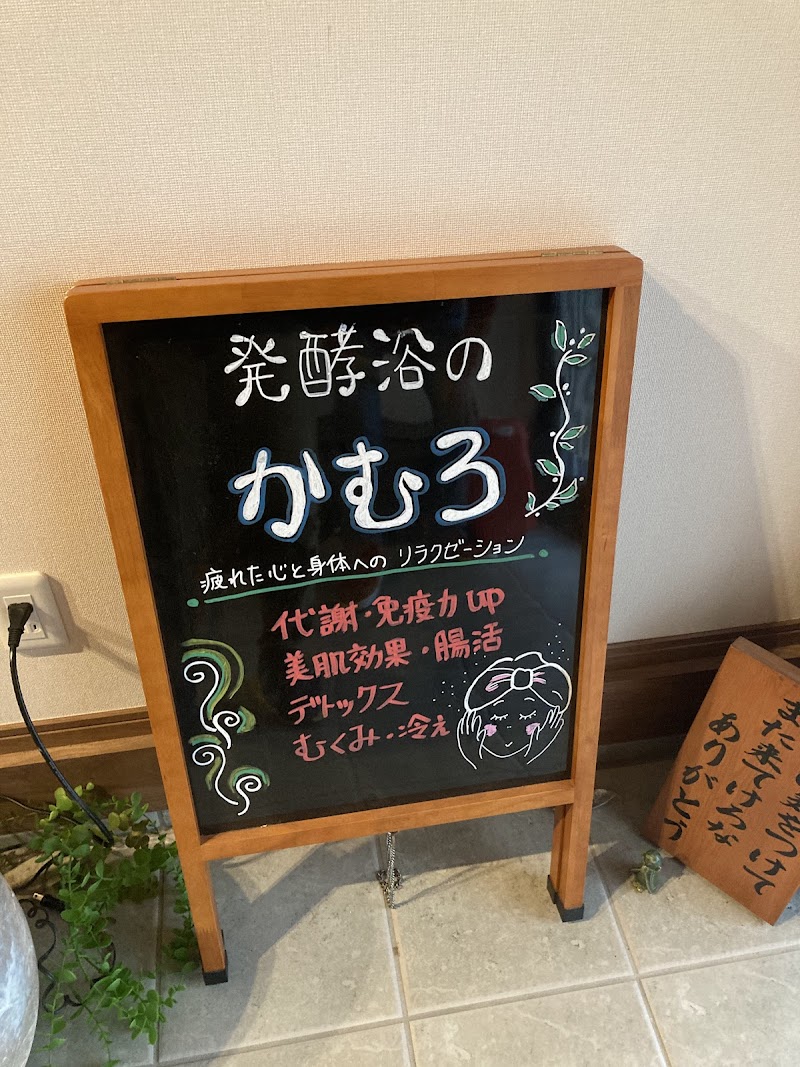 発酵浴の
かむろ
疲れた心と身体へのリラクゼーション
代謝・免疫力up
美肌効果・腸活
デトックス
むくみ・冷え
気をつけて
また来てけろな
ありがとう